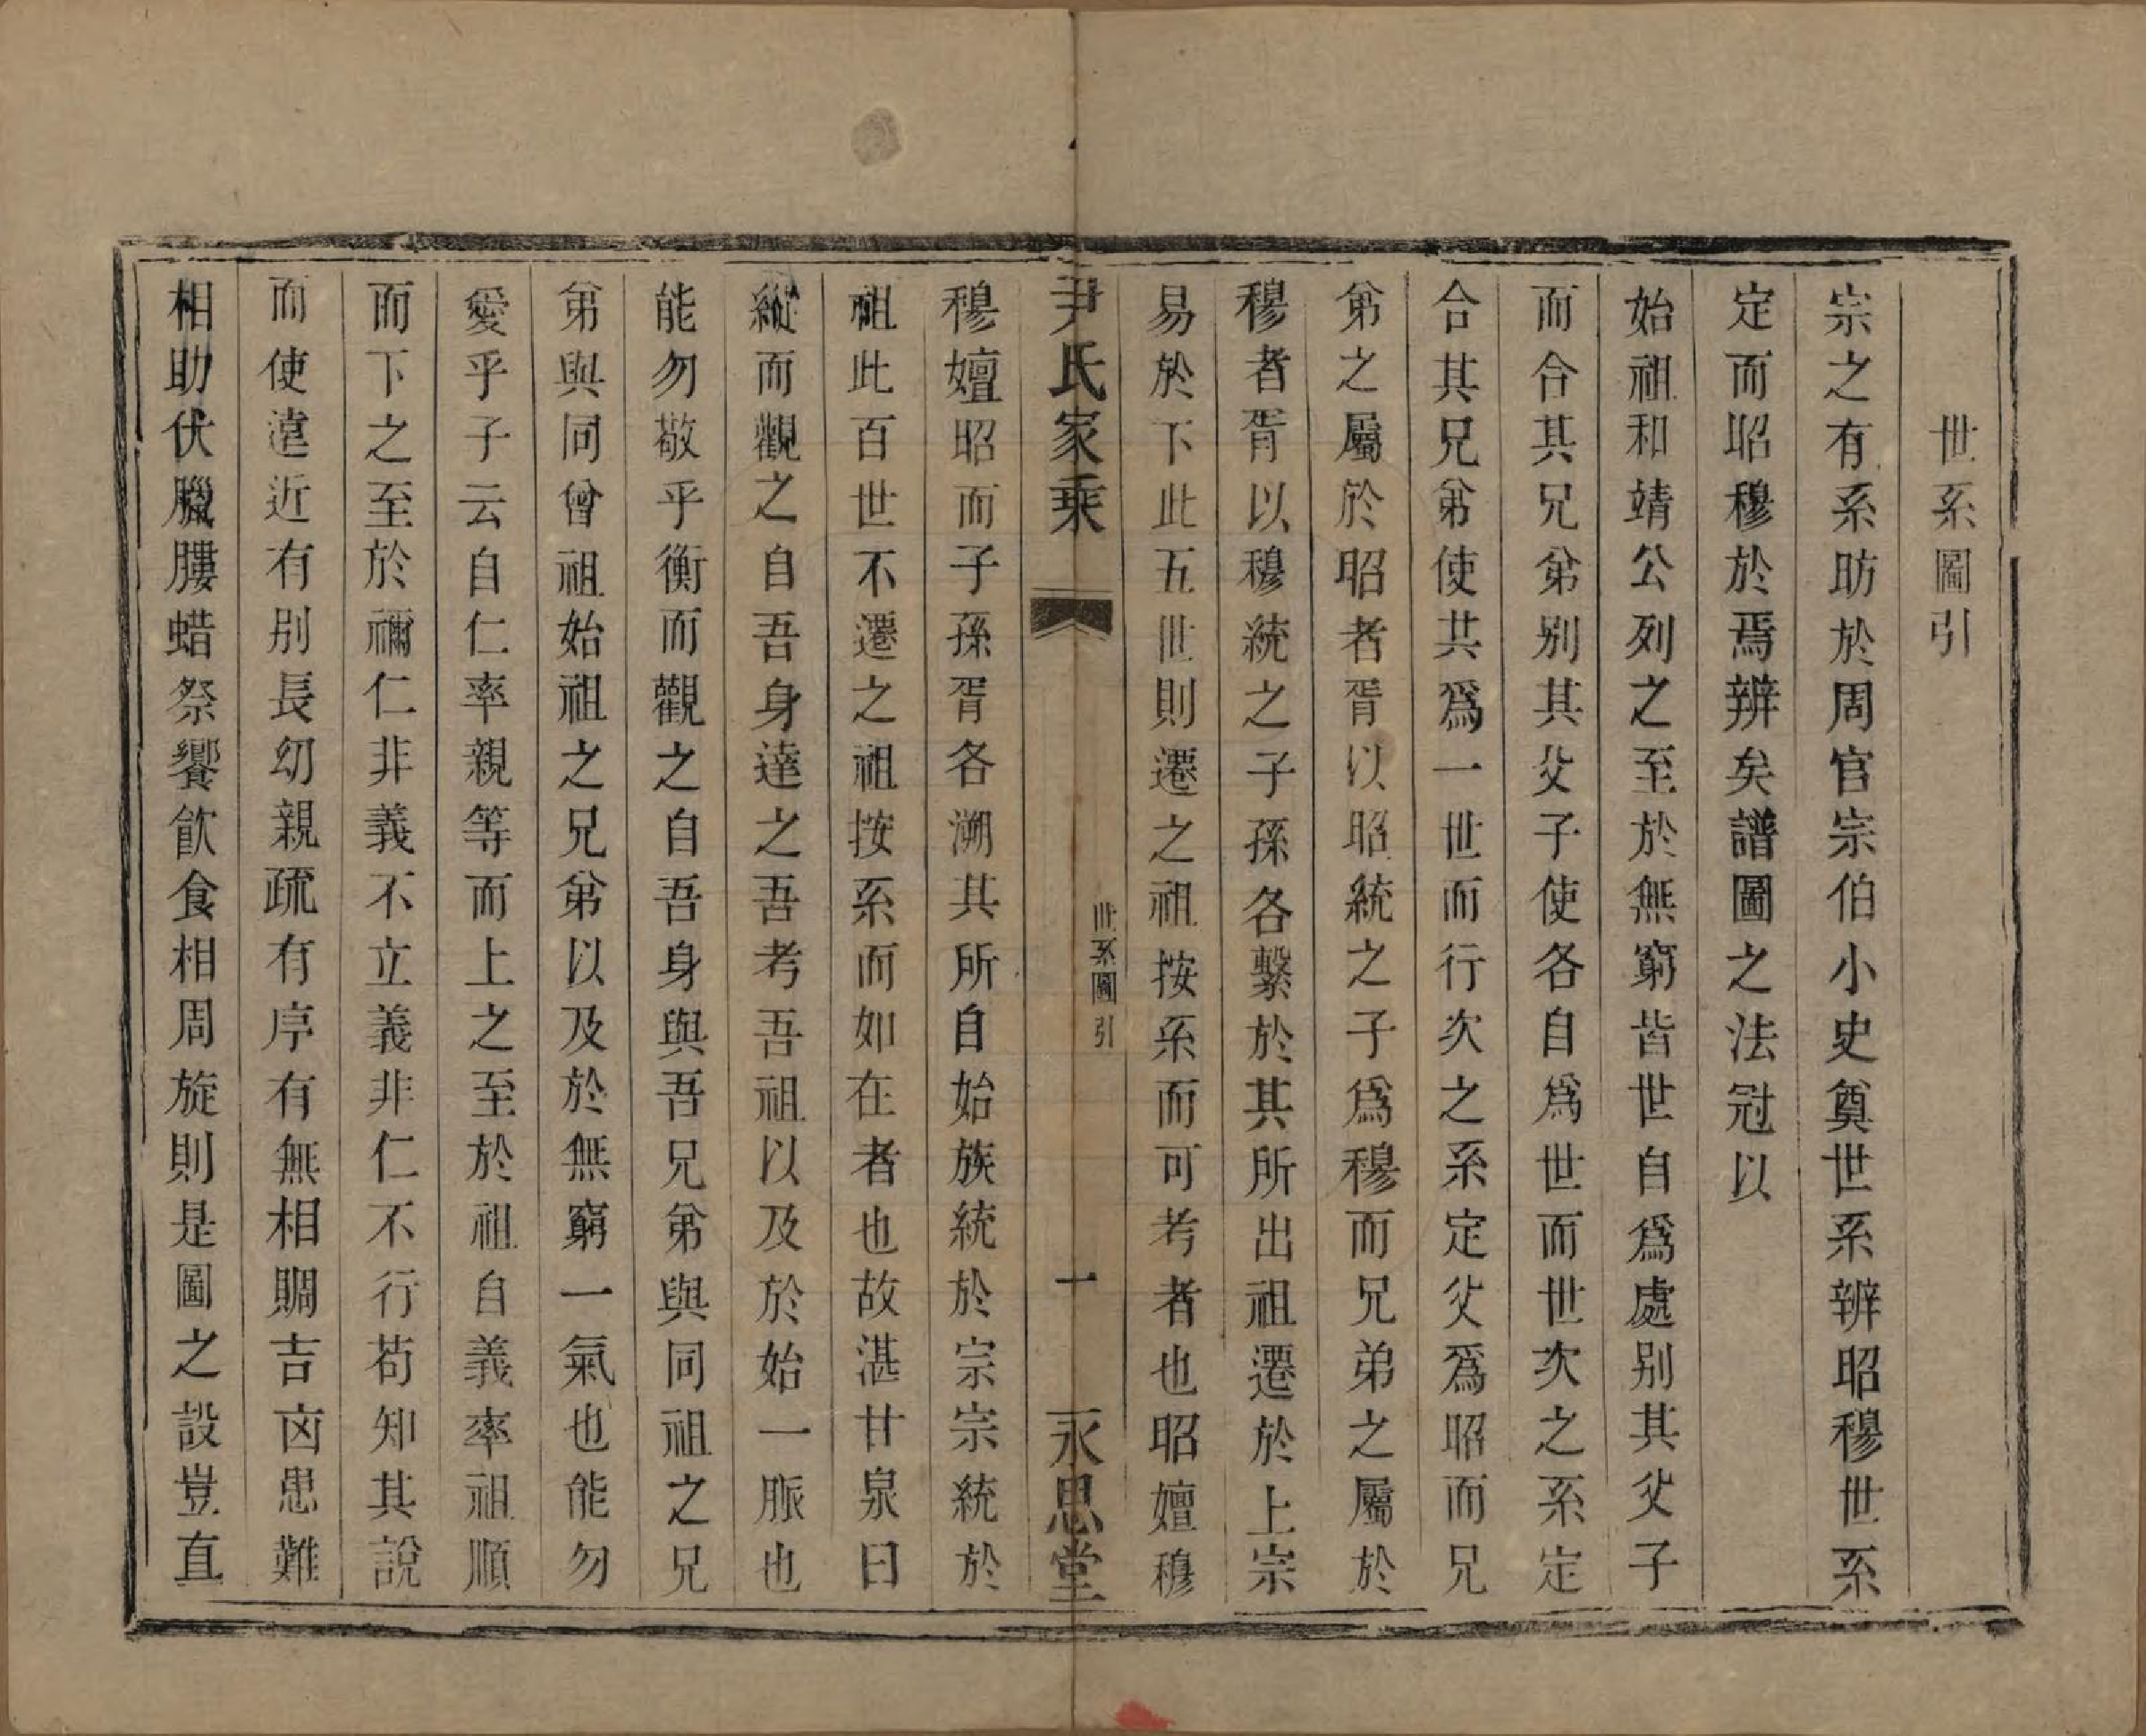 世系圖引
宗之有系昉於周官宗伯小史奠世系辨昭穆世系
定而昭穆於焉辨矣譜圖之法冠以
始祖和靖公列之至於無窮皆世自爲處别其父子
而合其兄弟别其父子使各自爲世而世次之系定
合其兄弟使共爲一世而行次之系定父爲昭而兄
弟之屬於昭者胥以昭統之子爲穆而兄弟之屬於
穆者胥以穆統之子孫各繫於其所出祖遷於上宗
易於下此五世則遷之祖按系而可考者也昭嬗穆
尹氏家乘
世系圖引
一
永思堂
穆嬗昭而子孫胥各溯其所自始族統於宗宗統於
祖此百世不遷之祖按系而如在者也故湛甘泉曰
縱而觀之自吾身達之吾考吾祖以及於始一脈也
能勿敬乎衡而觀之自吾身與吾兄弟與同祖之兄
弟與同曾祖始祖之兄弟以及於無窮一氣也能勿
愛乎子云自仁率親等而上之至於祖自義率祖順
而下之至於禰仁非義不立義非仁不行苟知其說
而使遠近有别長幼親疏有序有無相賙吉凶患難
相助伏臘膢蜡祭饗飲食相周旋則是圖之設豈直